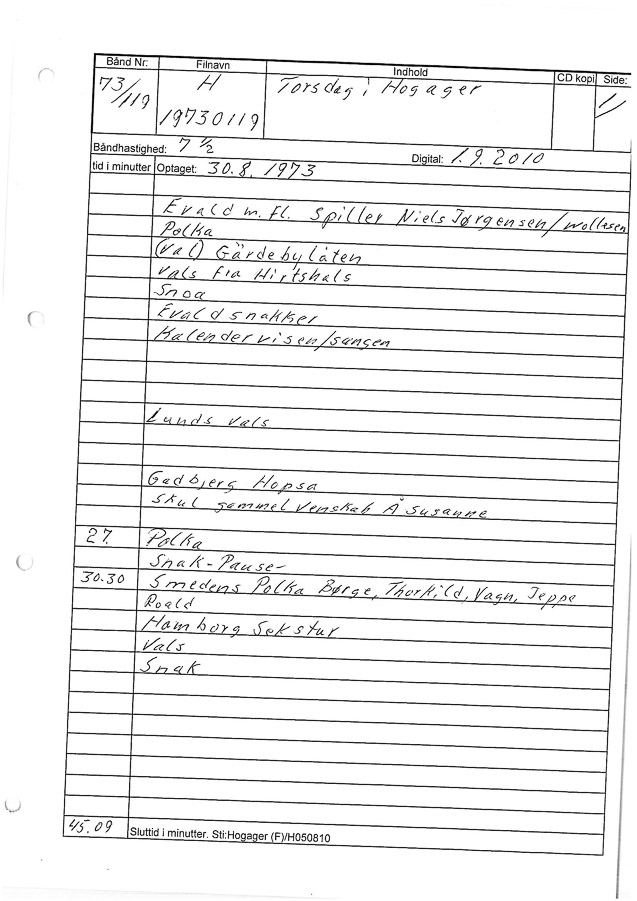 Bånd Nr: Filnavn Indhold CD kopi Side:
73/119 H Torsdag i Hogager 1/
19730119
Båndhastighed: 7 ½ Digital: 1.9.2010
tid i minutter Optaget: 30.8.1973
Evald m.fl. Spiller Niels Jørgensen/wollesen
Polka
(Val) Gärdebylåten
Vals fra Hirtshals
Snoa
Evald snakker
Kalendervisen/sangen
Lunds vals
Gadbjerg Hopsa
Skul gammel Venskab Å Susanne
27. Polka
Snak-Pause-
30.30 Smedens Polka Børge, Thorkild, Vagn, Jeppe
Roald
Hamborg Sekstur
Vals
Snak
45.09 Sluttid i minutter. Sti:Hogager (F)/H050810